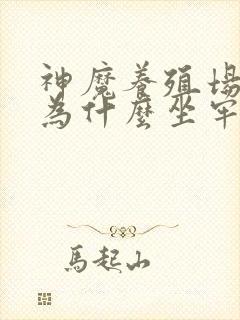 神魔養殖場
為什麼坐牢
馬起山